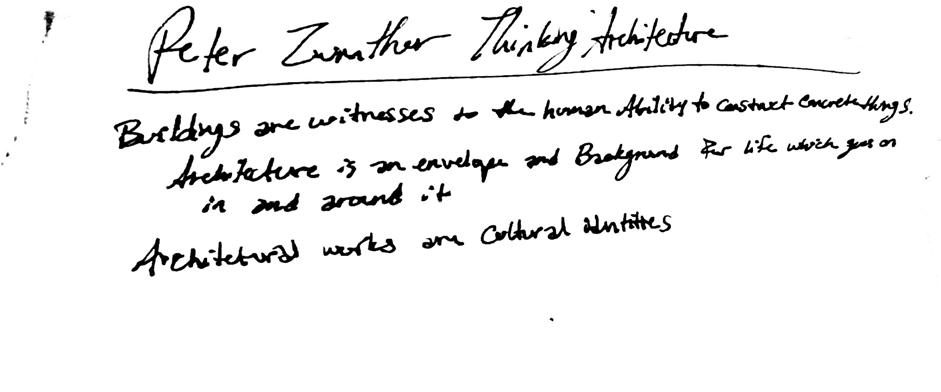 Peter Zumthor Thinking Architecture
Buildings are witnesses to the human Ability to construct concrete things.
Architecture is an envelope and Background for life which goes on
in and around it
Architetural works are Cultural identities